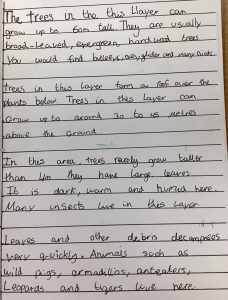 The trees in the this llayer can
grow up to 60m tall. They are usually
broad-leaved, evergreen, hardwood trees
You would find and many birds.
trees in this layer form a roof over the
plants below. Trees in this layer can
Grow up to around 30 to 45 metres
above the ground
In this area, trees rarely grow taller
than 4m they have large leaves
It is dark, warm and humid here.
Many insects live in this layer
Leaves and other debris decomposes
very quickly. Animals such as
wild pigs, armadillos, anteaters,
Leopards and tigers live here.